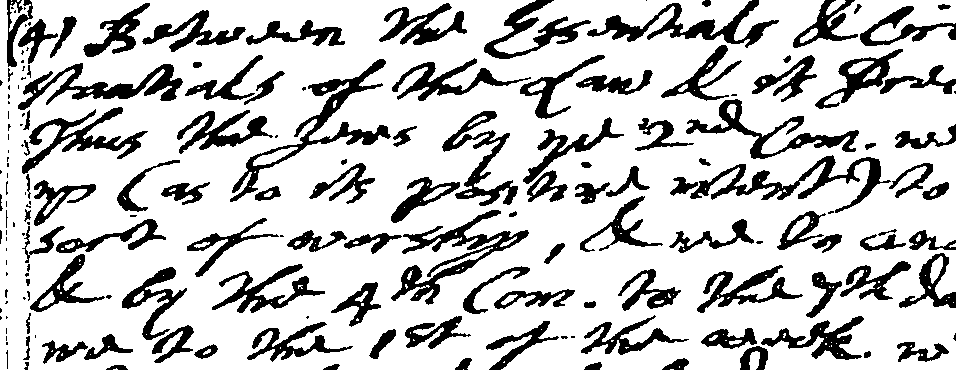 (4) Between the Essentials & Cir
stantials of the Law & its Prec
Thus the Jews by ye 2nd Com. we
up (as to its positive intent) to
sort of worship, & we to ano
& by the 4th Com. to the 7th da
we to the 1st of the week. w